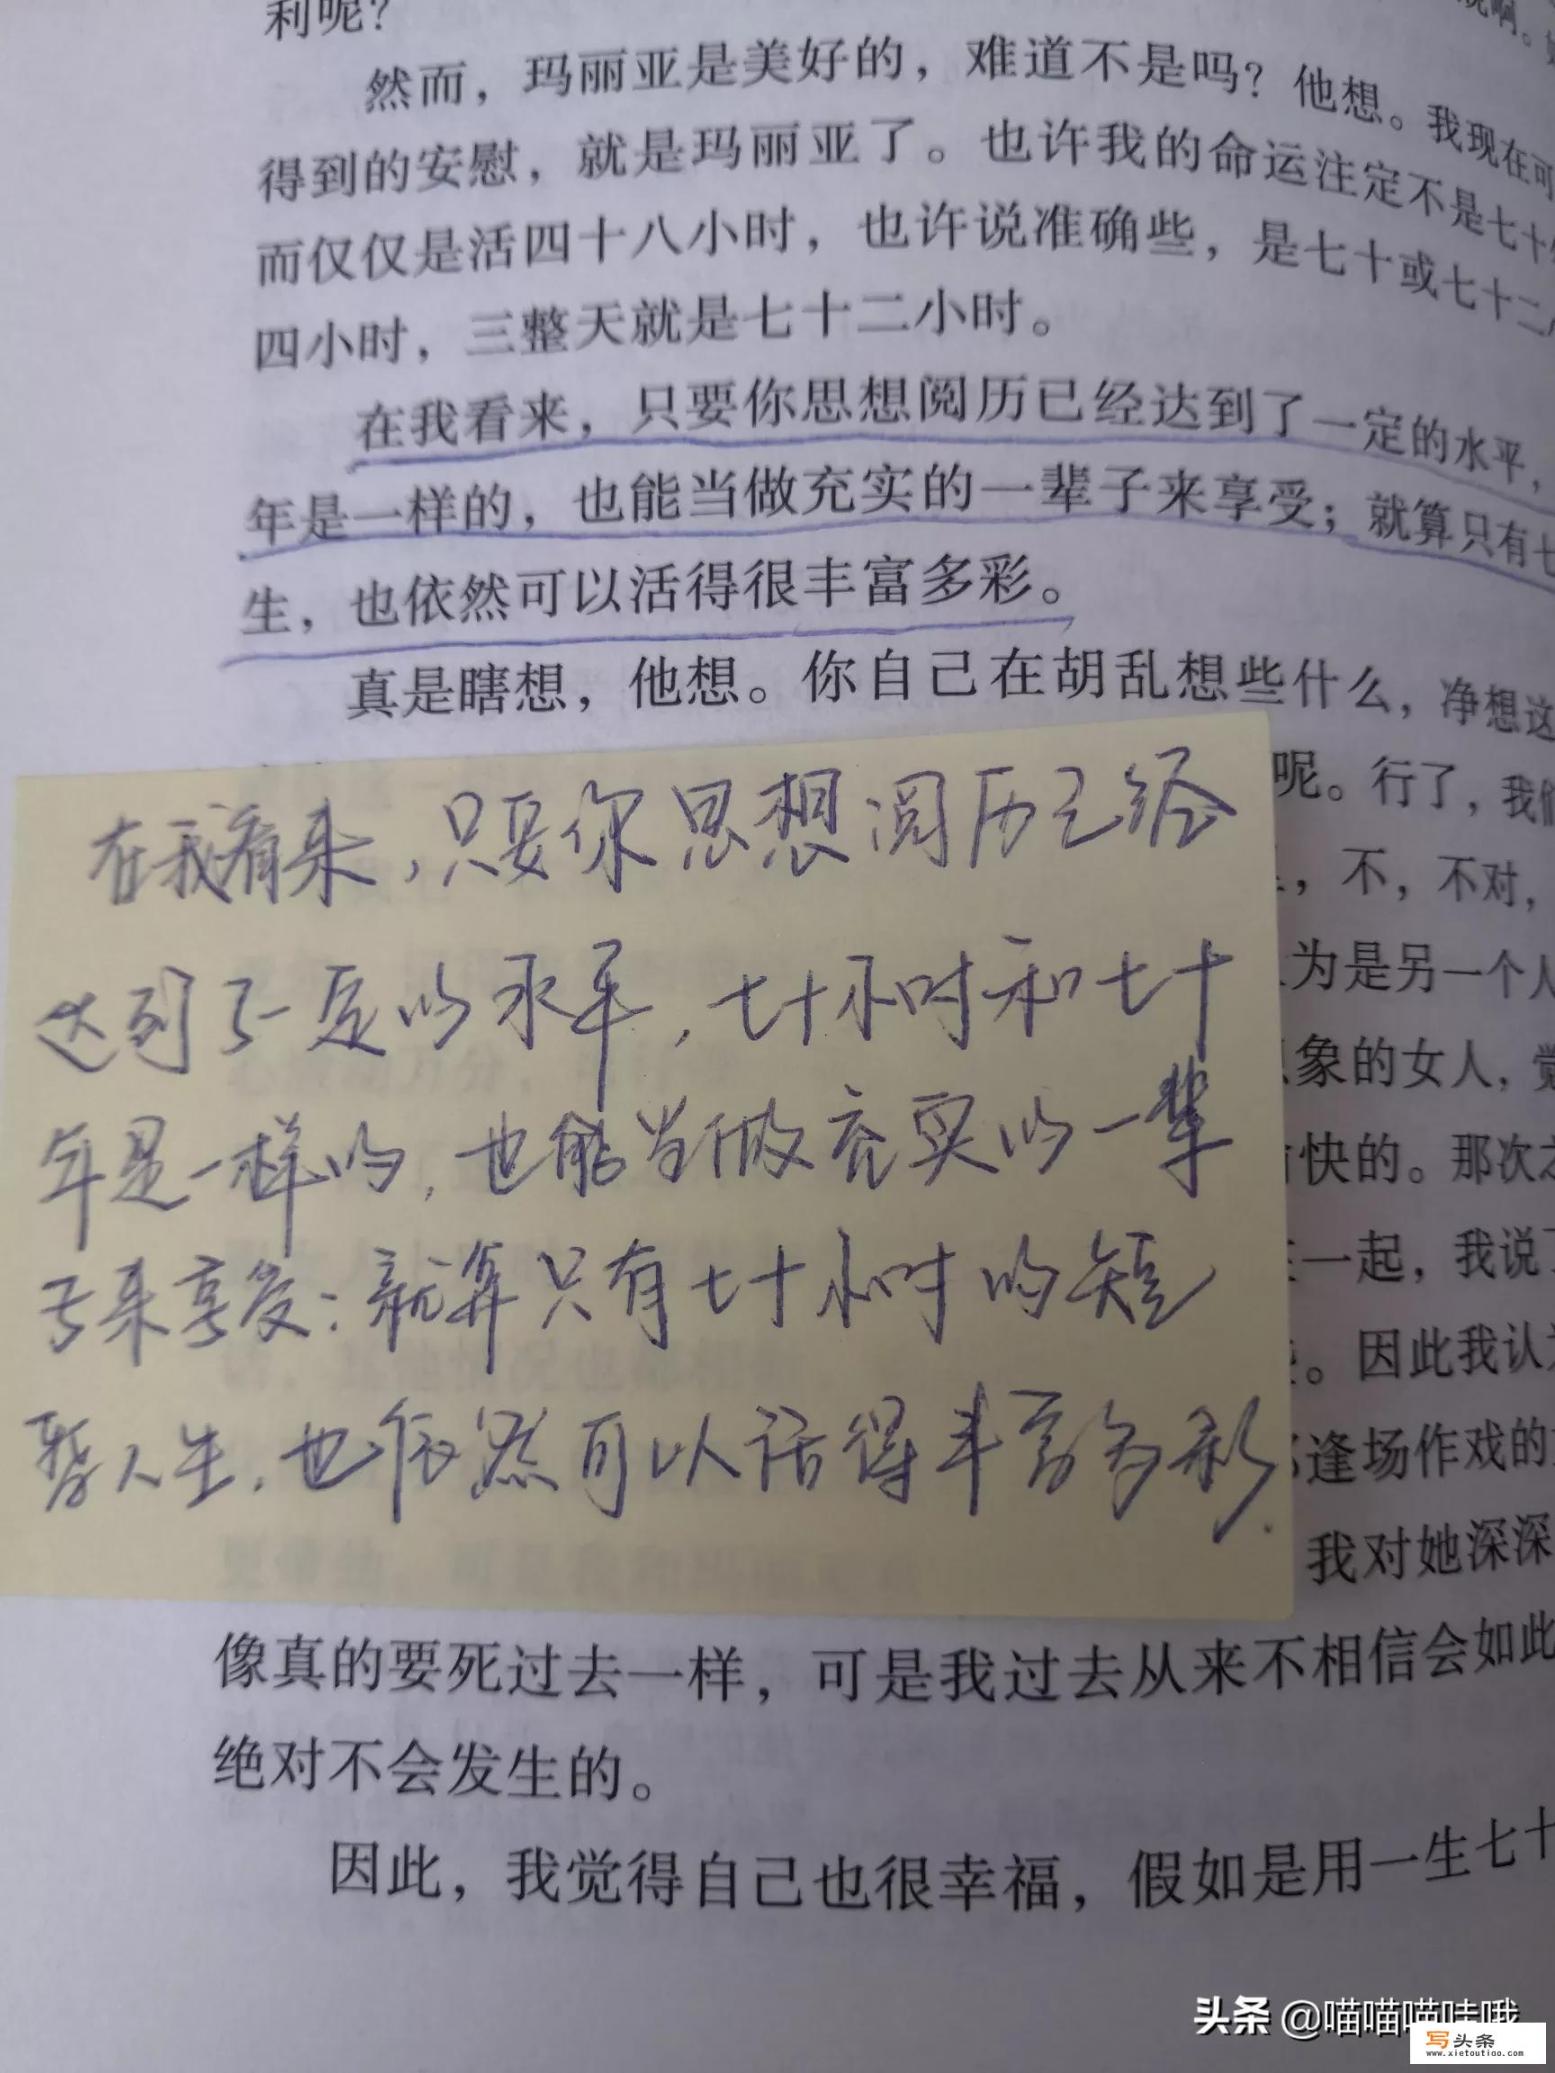 利呢？
然而，玛丽亚是美好的，难道不是吗？他想。我现在可
得到的安慰，就是玛丽亚了。也许我的命运注定不是七十
而仅仅是活四十八小时，也许说准确些，是七十或七十二
四小时，三整天就是七十二小时。
在我看来，只要你思想阅历已经达到了一定的水平，
年是一样的，也能当做充实的一辈子来享受；就算只有七
生，也依然可以活得很丰富多彩。
真是瞎想，他想。你自己在胡乱想些什么，净想这
呢。行了，我们
，不，不对，
为是另一个人
象的女人，觉
快的。那次
一起，我说
。因此我认
逢场作戏的
我对她深深
在我看来，只要你思想阅历已经
达到了一定的水平，七十小时和七十
年是一样的，也能当做充实的一辈
子来享受：就算只有七十小时的短
暂人生，也依然可以活得丰富多彩.
像真的要死过去一样，可是我过去从来不相信会如此
绝对不会发生的。
因此，我觉得自己也很幸福，假如是用一生七十
头条 @喵喵喵哇哦
写头条
www.xietoutiao.com